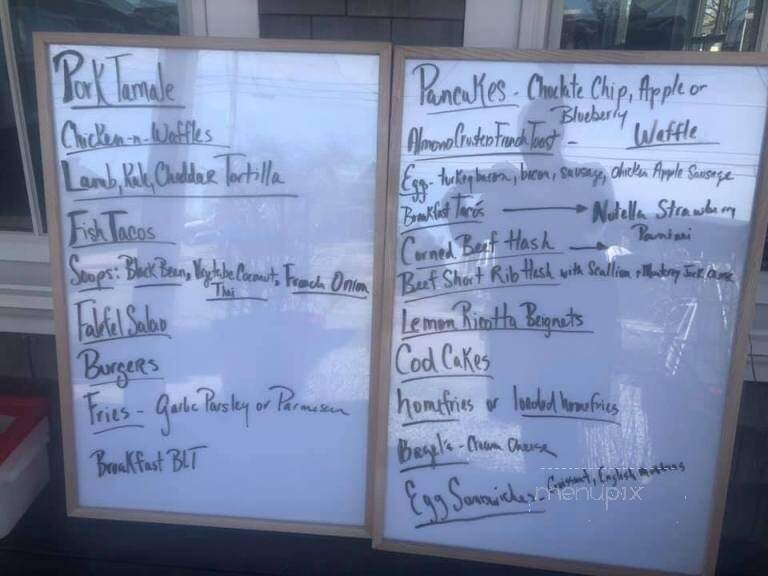 Pork Tamale
Chicken-n-Waffles
Lamb, Kale, Cheddar Tortilla
Fish Tacos
Soups: Black Bean, Vegtable Coconut, French Onion
Thai
Falafel Salad
Burgers
Fries - Garlic Parsley or Parmesan
Breakfast BLT
Pancakes - Choclate Chip, Apple or
Blueberry
Almond Crusted French Toast - Waffle
Egg - turkey bacon, bacon, sausage, Chicken Apple Sausage
Breakfast Tacos → Nutella Strawberry
Panini
Corned Beef Hash →
Beef Short Rib Hash with Scallion + Monterey Jack Cheese
Lemon Ricotta Beignets
Cod Cakes
homefries or loaded homefries
Bagel's - Cream Cheese
Egg Sandwiches - Croissant, English muffins
menupix